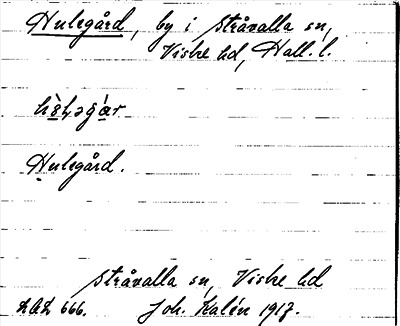 Hulegård, by i Stråvalla sn,
Viske hd, Hall. l.
Hulegård.
Stråvalla sn, Viske hd
666. Joh. Kalén 1917.